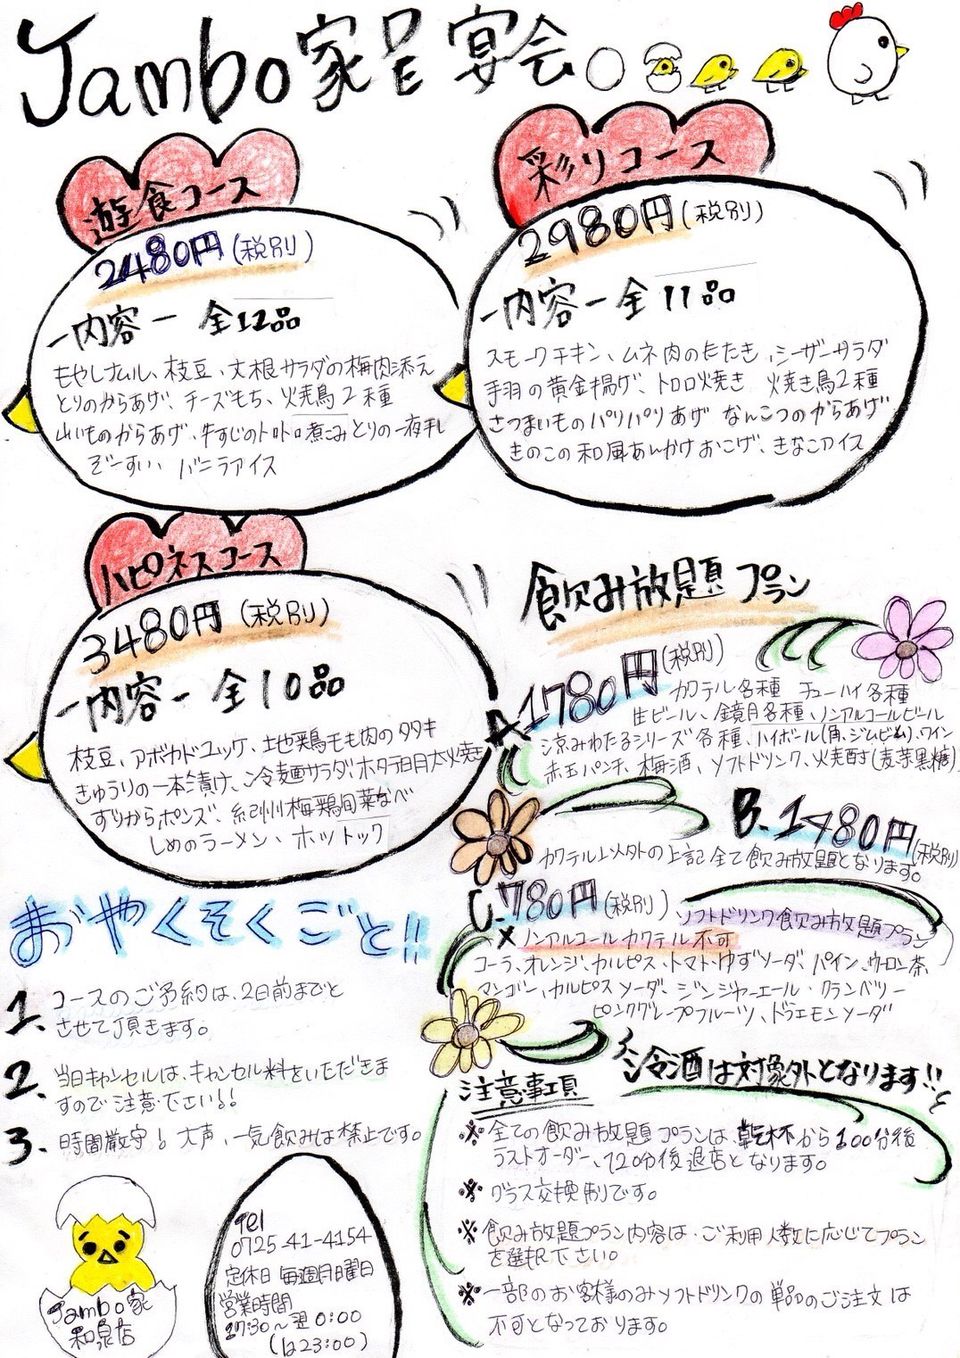 Jambo家呈宴会
遊食コース
2480円(税別)
ー内容ー 全12品
もやしナムル、枝豆、大根サラダの梅肉添え
とりのからあげ、チーズもち、火焼鳥2種
山いものからあげ、牛すじのトロトロ煮こみとりの一夜干し
ぞーすい バニラアイス
彩りコース
2980円(税別)
ー内容ー 全11品
スモークチキン、ムネ肉のたたき、シーザーサラダ
手羽の黄金揚げ、トロロ焼き 焼き鳥2種
さつまいものパリパリあげ なんこつのからあげ
きのこの和風あんかけおこげ、きなこアイス
ハピネスコース
3480円(税別)
ー内容ー 全10品
枝豆、アボカドユッケ、地鶏もも肉のタタキ
きゅうりの一本漬け、冷麺サラダ、ホタテ明太焼き
ずりからポンズ、紀州梅鶏旬菜なべ
しめのラーメン、ホットック
飲み放題プラン
A1780円(税別)
カクテル各種 チューハイ各種
生ビール、鏡月各種、ノンアルコールビール
涼みわたるシリーズ各種、ハイボール(角、ジムビーム)、ワイン
赤玉パンチ、梅酒、ソフトドリンク、焼酎(麦芋黒糖)
B.1480円(税別)
カクテル以外の上記全て飲み放題となります。
C.780円(税別) ソフトドリンク飲み放題プラン
×ノンアルコールカクテル不可
コーラ、オレンジ、カルピス、トマト・ゆずソーダ、パイン、ウーロン茶
マンゴー、カルピスソーダ、ジンジャーエール・クランベリー
ピンクグレープフルーツ、ドラエモンソーダ
冷酒は対象外となります!!
おやくそくごと!!
1. コースのご予約は、2日前までと
させて頂きます。
2. 当日キャンセルは、キャンセル料をいただきま
すので注意下さい!!
3. 時間厳守!大声、一気飲みは禁止です。
注意事項
※全ての飲み放題プランは、乾杯から100分後
ラストオーダー、120分後退店となります。
※グラス交換制です。
※飲み放題プラン内容は、ご利用人数に応じてプラン
を選択下さい。
※一部のお客様のみソフトドリンクの単品のご注文は
不可となっております。
Jambo家
和泉店
Tel
0725-41-4154
定休日 毎週月曜日
営業時間
17:30〜翌0:00
(Lo23:00)